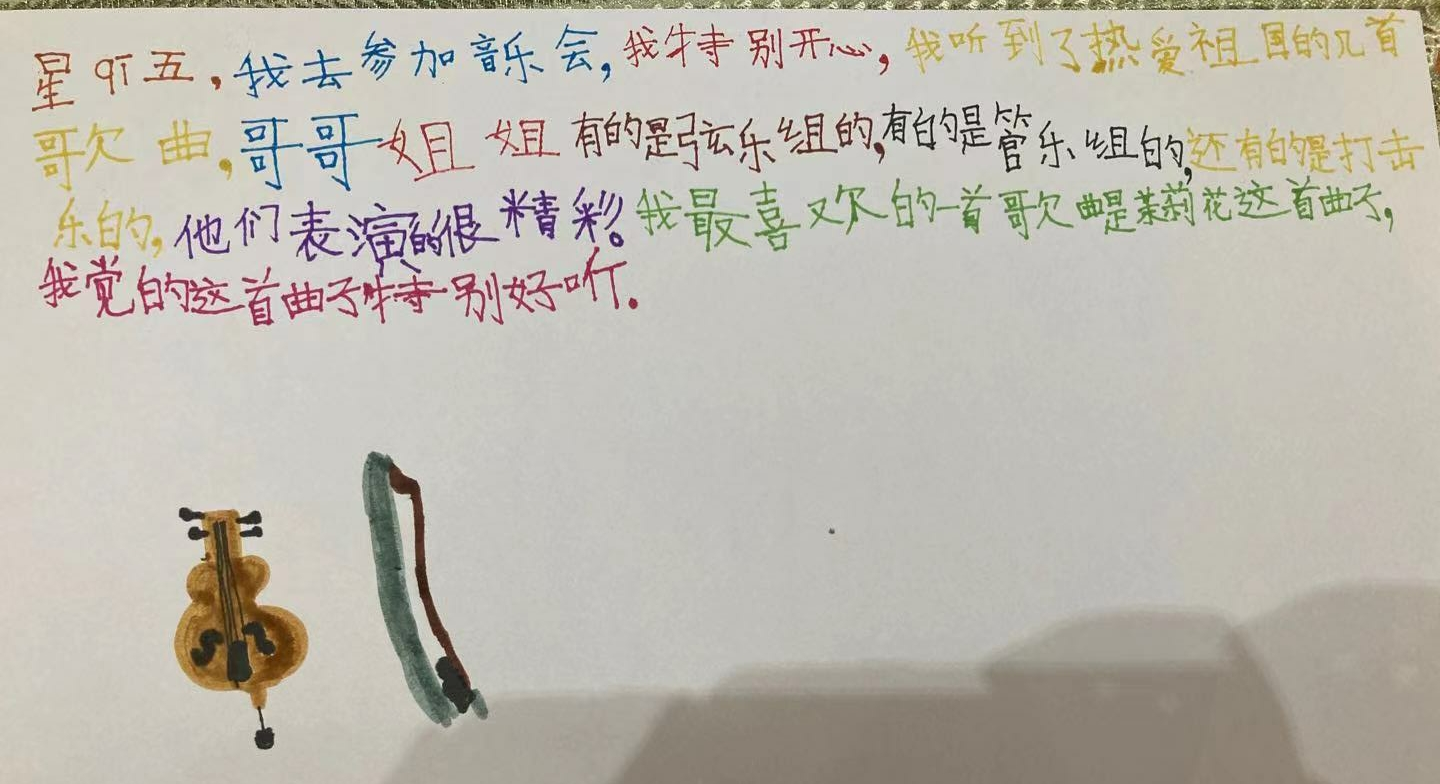 星听五，我去参加音乐会，我特别开心，我听到了热爱祖国的几首
歌曲，哥哥姐姐有的是弦乐组的，有的是管乐组的，还有的是打击
乐的，他们表演的很精彩。我最喜欢的一首歌曲是茉莉花这首曲子，
我觉的这首曲子特别好听。